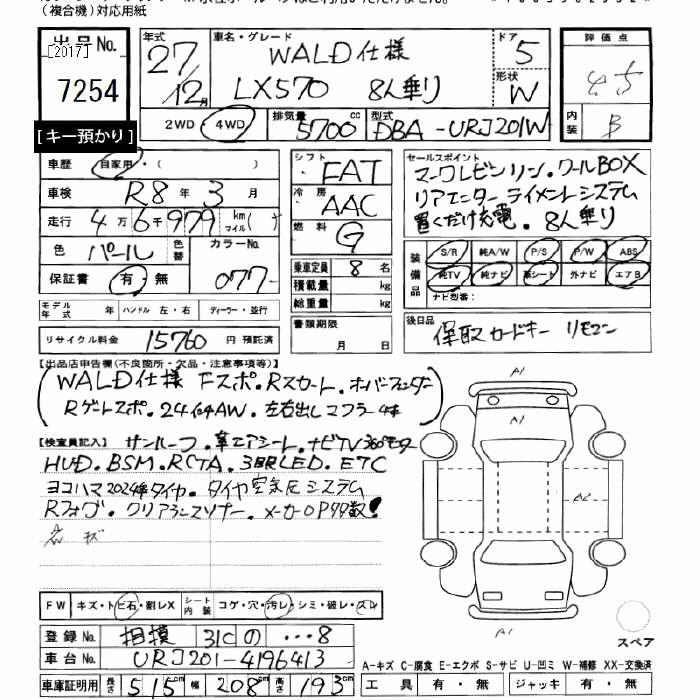 (複合機)対応用紙
出品No.
[2017]
7254
[キー預かり]
年式
27/12月
車名・グレード
WALD仕様
LX570 8人乗り
ドア
5
形状
W
評価点
4.5
内装
B
2WD 4WD
排気量
5700cc
型式
DBA-URJ201W
車歴 自家用・( )
車検 R8年 3月
走行 4万6千979km マイル( )
色 パール 色替 カラーNo.
保証書 有・無 077
モデル年式 年 ハンドル 左・右 ディーラー・並行
リサイクル料金 15760 円 預託済
シフト FAT
冷房 AAC
燃料 G
乗車定員 8名
積載量 kg
総重量 kg
書類期限
月 日
セールスポイント
マークレビンソン.クールBOX
リアエンターテイメントシステム
置くだけ充電. 8人乗り
装備品
S/R 純A/W P/S P/W ABS
純TV 純ナビ 革シート 外ナビ エアB
ナビ型番:
後日品
保取カードキー リモコン
【出品店申告欄(不良箇所・欠品・注意事項等)】
WALD仕様 Fスポ.Rスカート.オーバーフェンダー
Rゲートスポ.24インチAW.左右出しマフラー4本
【検査員記入】 サンルーフ.革エアシート.ナビTV360モニター
HUD.BSM.RCTA.3眼LED.ETC
ヨコハマ2024年タイヤ.タイヤ空気圧システム
Rフォグ.クリアランスソナー.メーカーOP多数!
FW キズ・トビ石・割レX シート内装 コゲ・穴・汚レ・シミ・破レ・スレ
登録No. 相模 310 の ・・・8
車台No. URJ201-4196413
車庫証明用 長さ 515cm 幅 208cm 高さ 193cm
A1
A1
A2
A1
スペア
A-キズ C-腐食 E-エクボ S-サビ U-凹ミ W-補修 XX-交換済
工具 有・無 ジャッキ 有・無